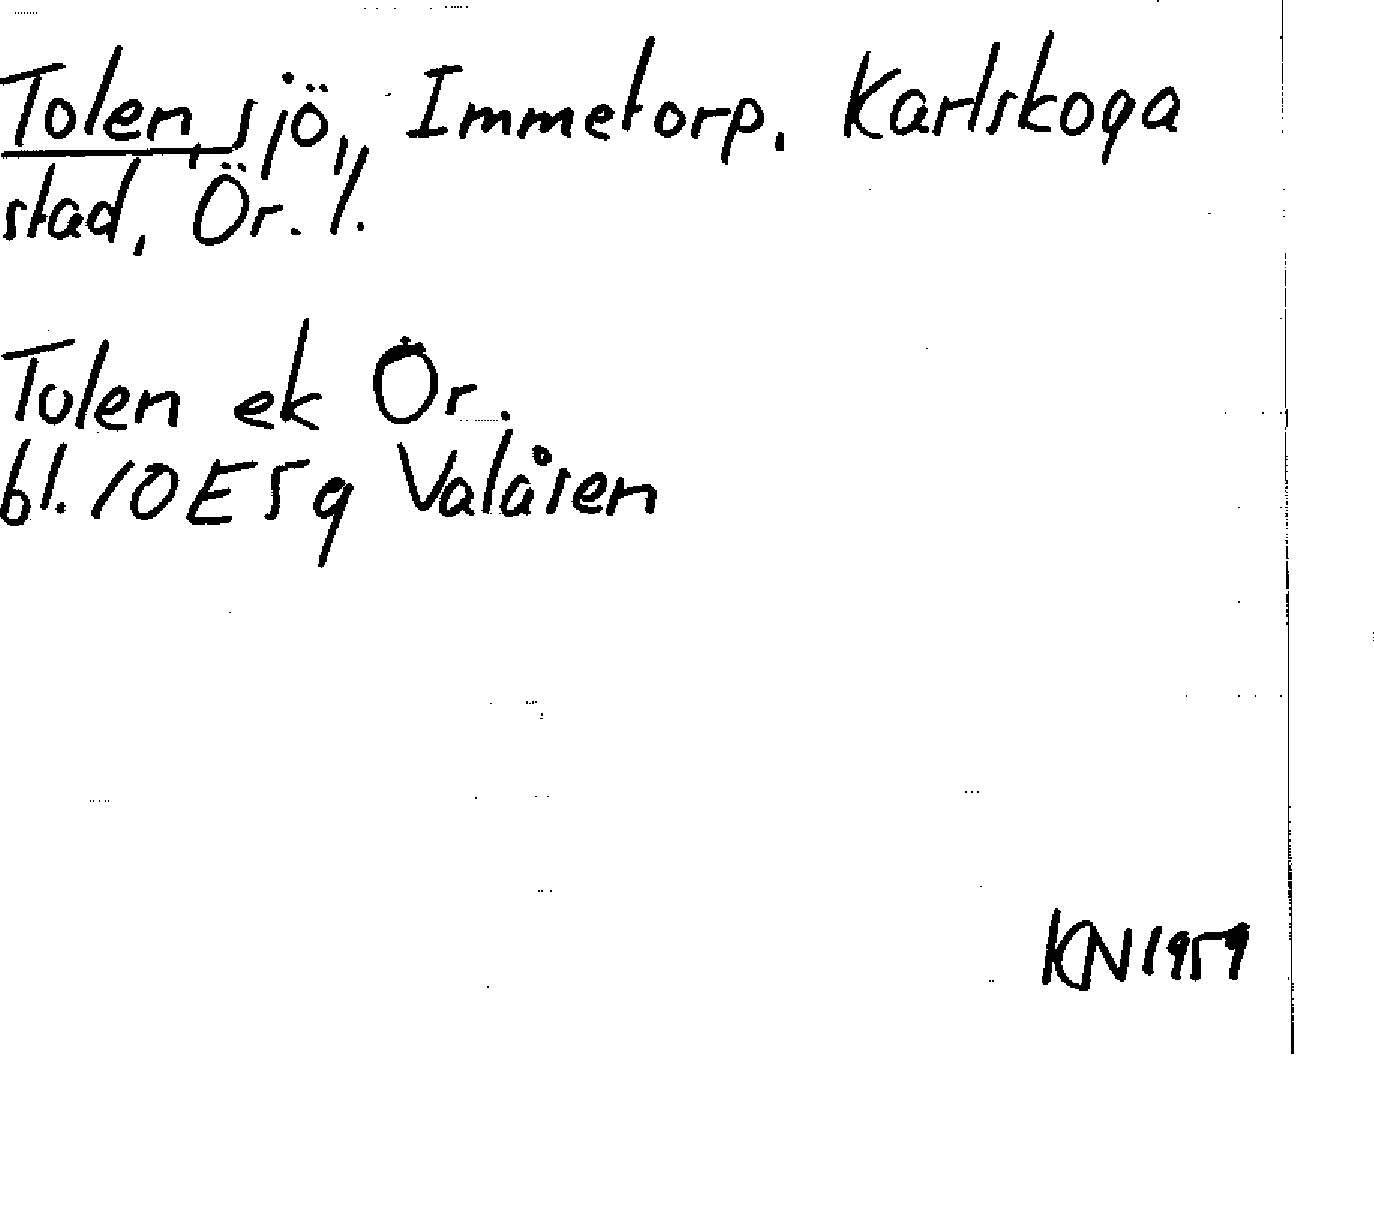 Tolen, sjö, Immetorp, Karlskoga
stad, Ör. l.
Tolen ek Ör.
bl. 10E5g Valåsen
KN1959